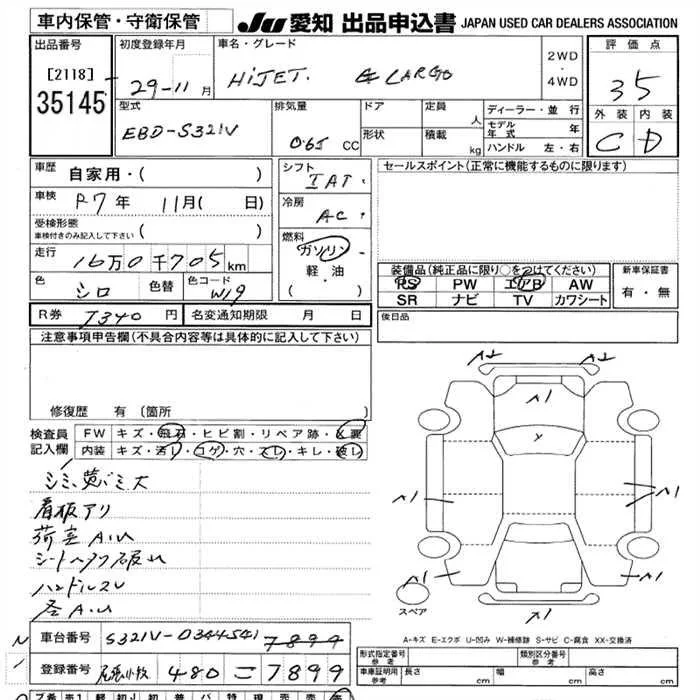 車内保管・守衛保管
JU 愛知 出品申込書 JAPAN USED CAR DEALERS ASSOCIATION
出品番号
[2118]
35145
初度登録年月
29-11月
車名・グレード
HIJET. CARGO
2WD
・
4WD
評価点
35
外装 内装
C D
型式
EBD-S321V
排気量
0.65 CC
ドア
形状
定員
人
積載
kg
ディーラー・並行
モデル年式 年
ハンドル 左・右
車歴 自家用・( )
車検 R7年 11月( 日)
受検形態
車検付きのみ記入して下さい ( )
走行 16万0千705km
色 シロ 色替 色コード W19
シフト
IAT
冷房
AC
燃料
ガソリン
軽・油
・( )
セールスポイント(正常に機能するものに限ります)
装備品(純正品に限り○をつけてください)
PS PW エアB AW
SR ナビ TV カワシート
新車保証書
有・無
R券 7340円 名変通知期限 月 日
後日品
注意事項申告欄(不具合内容等は具体的に記入して下さい)
修復歴 有〔箇所
検査員
記入欄
FW キズ・飛石・ヒビ割・リペア跡・X裏
内装 キズ・汚レ・コゲ・穴・スレ・キレ・破レ
シミ、黄バミ大
看板アリ
荷室A.U
ハンドルスレ
A.U
A2 A2
A1
Y
A1 A1
A1
A1 A1
X1
スペア
A-キズ E-エクボ U-凹み W-補修跡 S-サビ C-腐食 XX-交換済
車台番号 S321V-0344541
7899
登録番号 尾張小牧 480 こ 7899
形式指定番号
参考
類別区分番号
参考
車庫証明用
参考
長さ cm
幅 cm
高さ cm